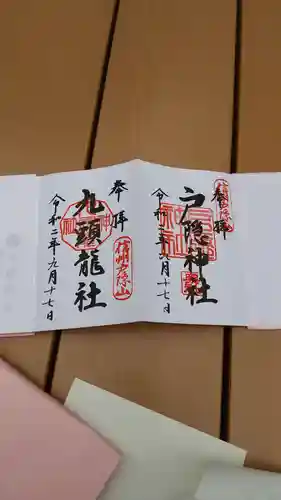 奉拝
戸隠神社
令和二年九月十七日
奉拝
信州戸隠山
九頭龍社
令和二年九月十七日